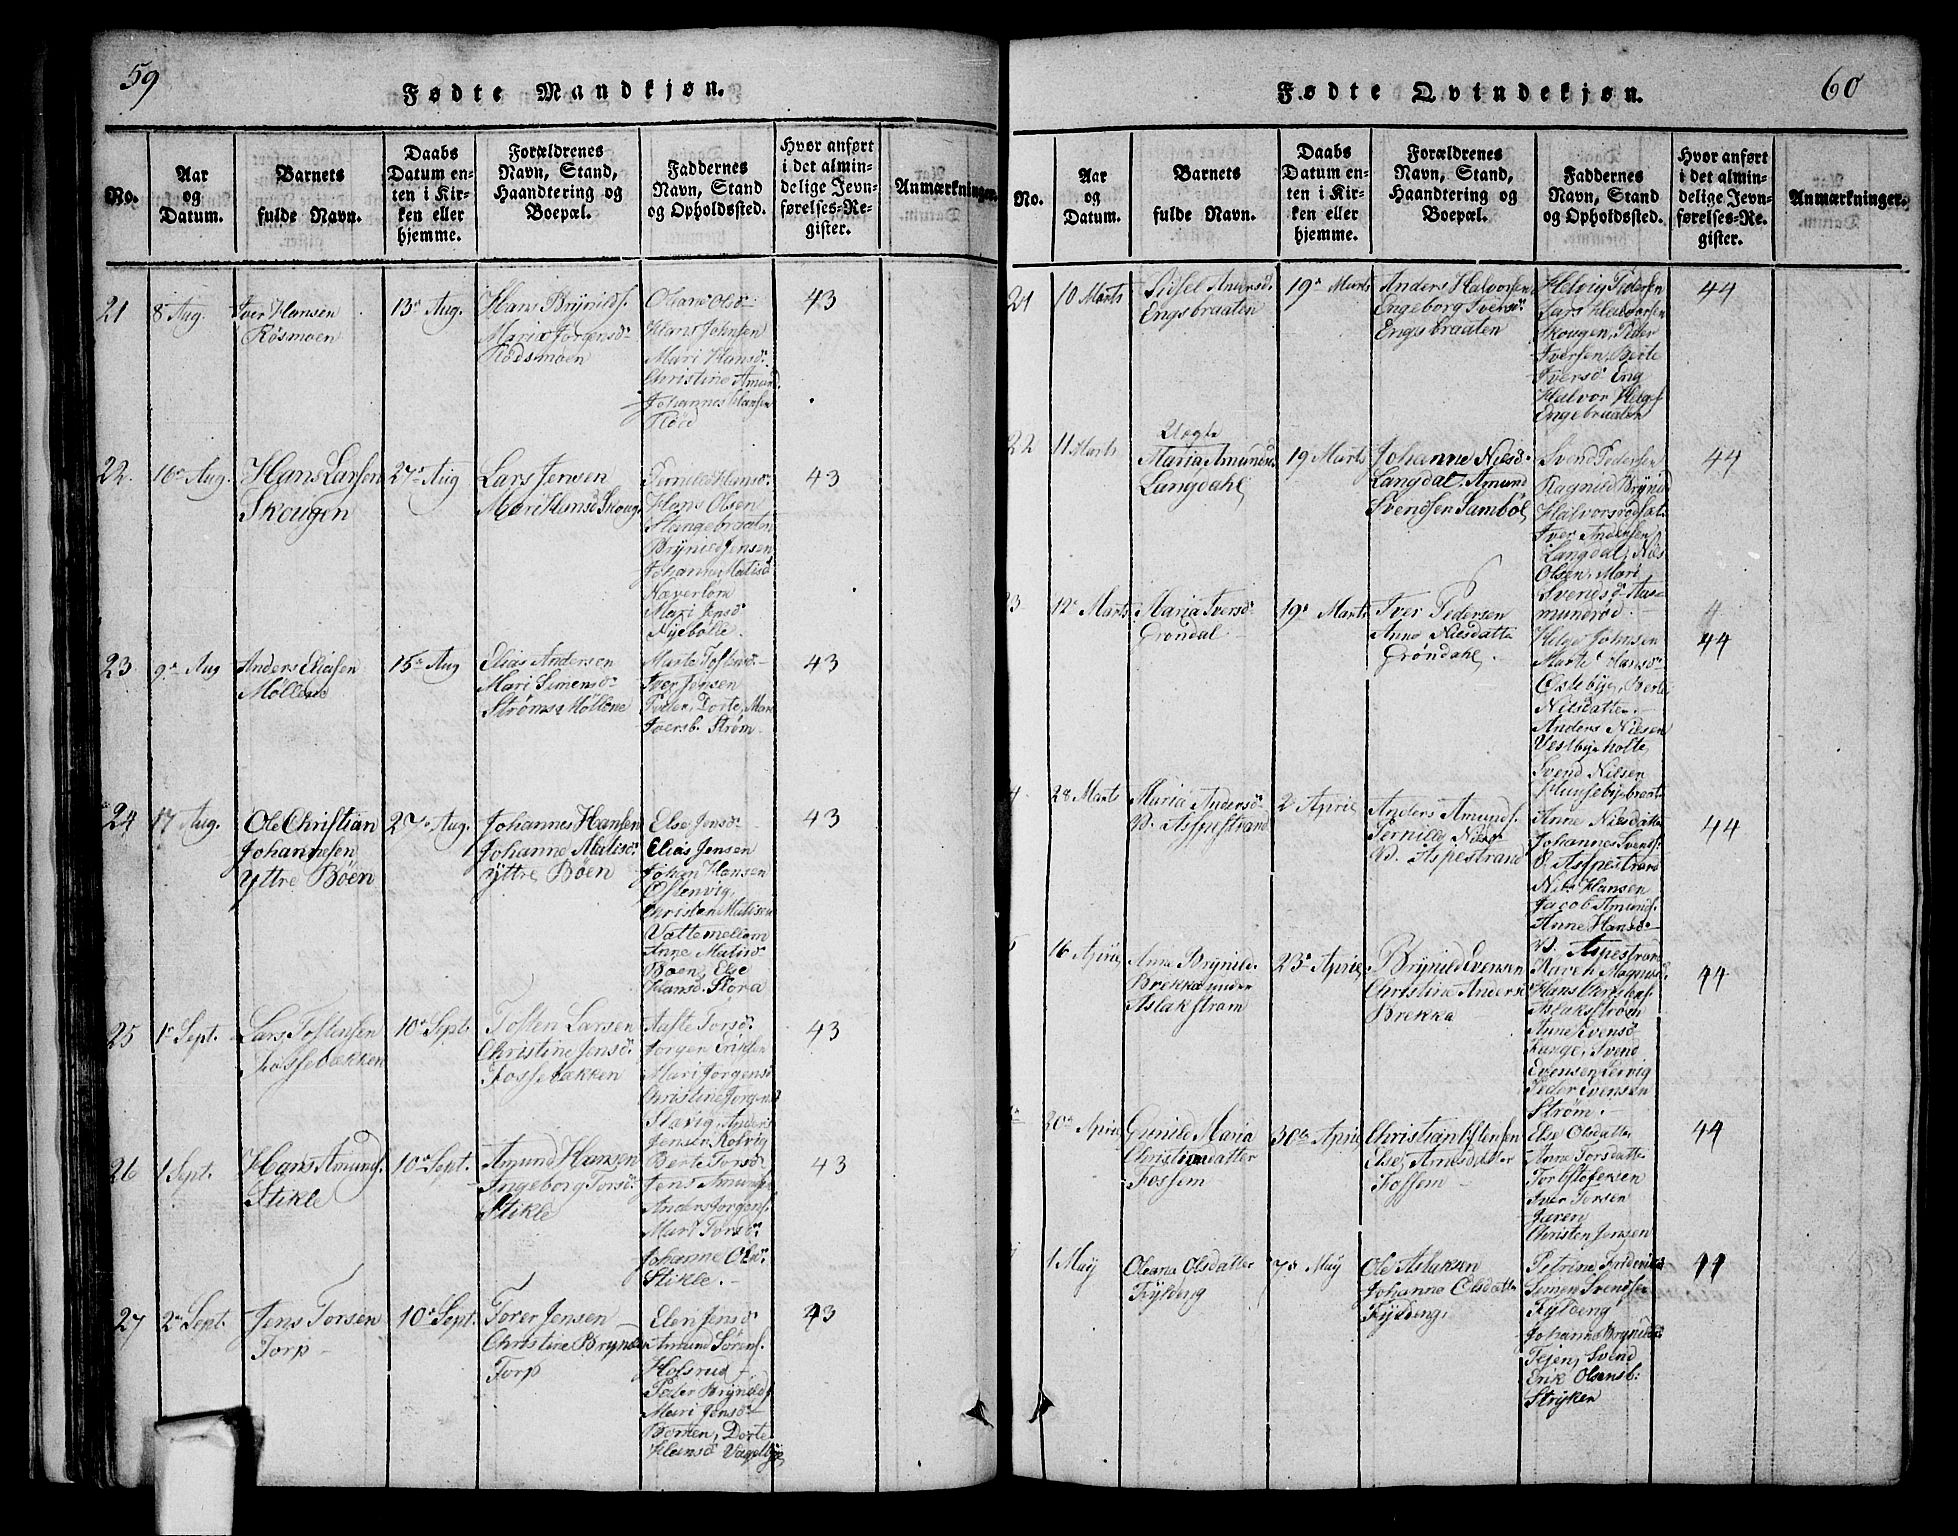 59
Fødte Mandkjøn.
No.
Aar
og
Datum.
Barnets
fulde Navn.
Daabs
Datum en-
ten i Kir-
ken eller
hjemme.
Forældrenes
Navn, Stand,
Haandtering og
Boepæl.
Faddernes
Navn, Stand
og Opholdssted.
Hvor anført
i det almin-
delige Jevn-
førelses-Re-
gister.
Anmærkninger.
21
8 Aug.
Iver Hansen
Rösmoen
13de Aug.
Hans Brynilds.
Maria Jorgensd.
Rödsmoen
Hans Johnsen
Mari Hansd.
Christine Amund
Johannes Hansen
Röd
43
22.
16de Aug.
Hans Larsen
Skougen
27de Aug
Lars Jensen
Mari Hansd Skoug.
Pernille Hansd.
Hans Olsen
Brynild Jensen
Johanne Matisd
Mari Jensd
Nyebølle.
43
23
9de Aug
Anders Eliasen
Møllene
15de Aug
Elias Andersen
Mari Simensd
Strøms Møllene
Marte Tostensd.
Iver Jensen
Peder, Dorte, Mari
Iversb. Strøm.
43
24
17 Aug.
Ole Christian
Johannesen
Yttre Böen
27de Aug.
Johannes Hansen
Johanne Matisd.
Yttre Böen
Else Jensd.
Elias Jensen
Johan Hansen
Ostenvig,
Christen Matisen
Vattemellem
Anne Matisd
Boen, Else
Hansd. Flora
43
25
1de Sept.
Lars Tostensen
Fossebakken
10de Sept.
Tosten Larsen
Christine Jensd.
Fossebakken
Aaste Torsd.
Jorgen Eriksen
Mari Jorgensd
Christine Jorgensd
Slavig, Anders
Jensen Kolvig
43
26
1 Sept.
Hans Amunds.
Stikle
10de Sept.
Amund Hansen
Ingeborg Torsd.
Stikle
Berte Torsd.
Jens Amundsen
Anders Jorgens.
Mart Torsd.
Johanne Olsd.
Stikle.
43
27
2de Sept.
Jens Torsen
Torp
10de Sept.
Torer Jensen
Christine Brynilds.
Torp
Eleri Jensd.
Amund Sörens.
Holsrud
Peder Brynilds
Mari Jonsd.
Bomen, Dorte
Hansd Vagelbye
43
60
Fødte Qvindekjøn.
No.
Aar
og
Datum.
Barnets
fulde Navn.
Daabs
Datum en-
ten i Kir-
ken eller
hjemme.
Forældrenes
Navn, Stand,
Haandtering og
Boepæl.
Faddernes
Navn, Stand
og Opholdssted.
Hvor anført
i det almin-
delige Jevn-
førelses-Re-
gister.
Anmærkninger.
21
10 Marts
Sidsel Andersd.
Engsbraaten
19de Marts
Anders Halvorsen
Engeborg Iversd.
Engsbraaten
Helvig Pedersen
Lars Halvorsen
Skougen, Peder
Iversen, Berte
Iversd Eng
Halvor Helges
Engebraaten
44
22
11 Marts
Uægte
Maria Amundsd
Langdahl
19 Marts
Johanne Nilsd.
Langdal, Amund
Svendsen Sambøl
Svend Pedersen
Ragnild Brynild
Halvorsrødsæt.
Iver Andersen
Langdal, Nils
Olsen, Mari
Svendsd Aas-
munderød.
44
23
12de Marts
Maria Iversd.
Grøndal
19de Marts
Iver Pedersen
Anne Nilsdatte
Grøndahl.
Helge Johnsen
Marte Hansd.
Ostebye, Berte
Nilsdatte.
Anders Nilsen
Vestbyeholte
4
44
4
28 Marts
Maria Andersd
V. Aspestrand
2 April
Anders Amunds.
Pernille Nilsd.
V. Aspestrand
Svend Nilsen
Huusebyebraat
Anne Nilsdatte
Johannes Svends.
V. Aspestrand
Nils Hansen
Jacob Amunds.
Anne Hansd.
V. Aspestrand
44
5
16 April
Anne Brynilds.
Brekka under
Aslakstrøm
23de April
Brynild Evensen
Christine Andersd
Brekka
Karen Magnusd.
Hans Christens.
Aslakstrøm
Anne Evensd
Lunge, Svend
Evensen Lervig
Peder Evensen
Strøm.
44
30de April
Gunild Maria
Christiansdatter
Fossem
30de April
Christian Ostensen
Else Arnesdatter
Fossem
Else Olsdatte
Anne Torsdatte
Torb Stofersen
Iver Torsen
Jaren
Christen Jensen
44
1 May
Oleana Olsdatter
Fylding
7de May
Ole Aslaksen
Johanne Olsdatte
Fylding,
Petrine Frideriksd.
Simen Svendsen
Fylding
Johanne Brynildsd.
Tejen, Svend
Erik Olsensb:
Stryken
44